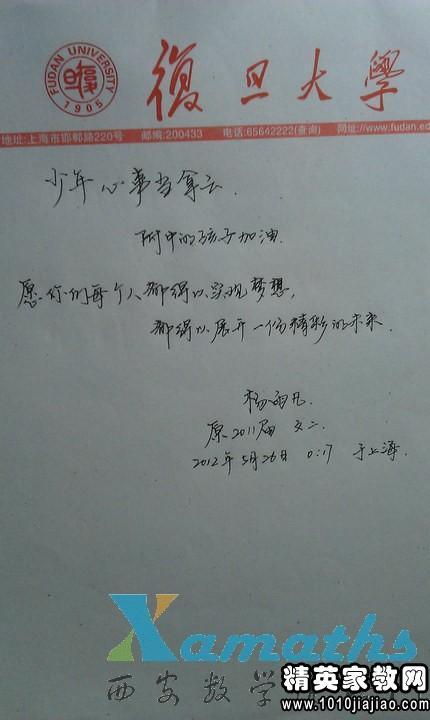 FUDAN UNIVERSITY
1905
復旦大學
地址:上海市邯郸路220号 邮编:200433 电话:65642222(查询) 网址://www.fudan.ed
少年心事当拿云.
附中的孩子加油.
愿你们每个人都得以实现梦想,
都得以展开一份精彩的未来.
杨雨凡.
原2011届 文二
2012年5月26日 0:17 于上海.
Xamaths
西安数学
精英家教网
www.1010jiajiao.com